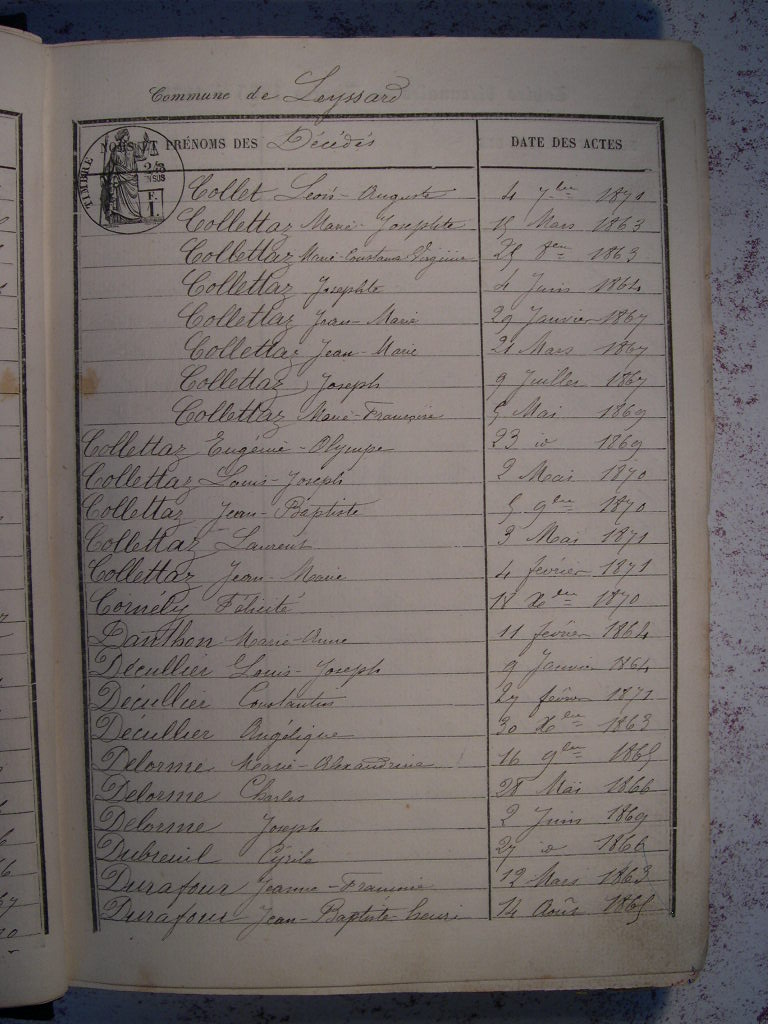 Commune de Leyssard
NOMS ET PRÉNOMS DES Décédés DATE DES ACTES
TIMBRE
Collet Léon-Auguste 4 7bre 1871
Collettaz Marie-Josephte 15 Mars 1863
Collettaz Marie-Constance-Virginie 25 8bre 1863
Collettaz Josephte 4 Juin 1864
Collettaz Jean-Marie 29 Janvier 1867
Collettaz Jean-Marie 21 Mars 1867
Collettaz Joseph 9 Juillet 1867
Collettaz Marie-Françoise 5 Mai 1869
Collettaz Eugénie-Olympe 23 id 1869
Collettaz Louis-Joseph 2 Mai 1870
Collettaz Jean-Baptiste 5 9bre 1870
Collettaz Laurent 3 Mai 1871
Collettaz Jean-Marie 4 février 1871
Cornély Félicité 18 Xbre 1870
Danthon Marie-Anne 11 février 1864
Décullier Louis-Joseph 9 Janvier 1864
Décullier Constantin 27 février 1871
Décullier Angélique 30 Xbre 1863
Delorme Marie-Alexandrine 16 9bre 1865
Delorme Charles 28 Mai 1866
Delorme Joseph 2 Juin 1869
Dubreuil Cyrile 27 id 1866
Durafour Jeanne-Françoise 12 Mars 1863
Durafour Jean-Baptiste-henri 14 Août 1865